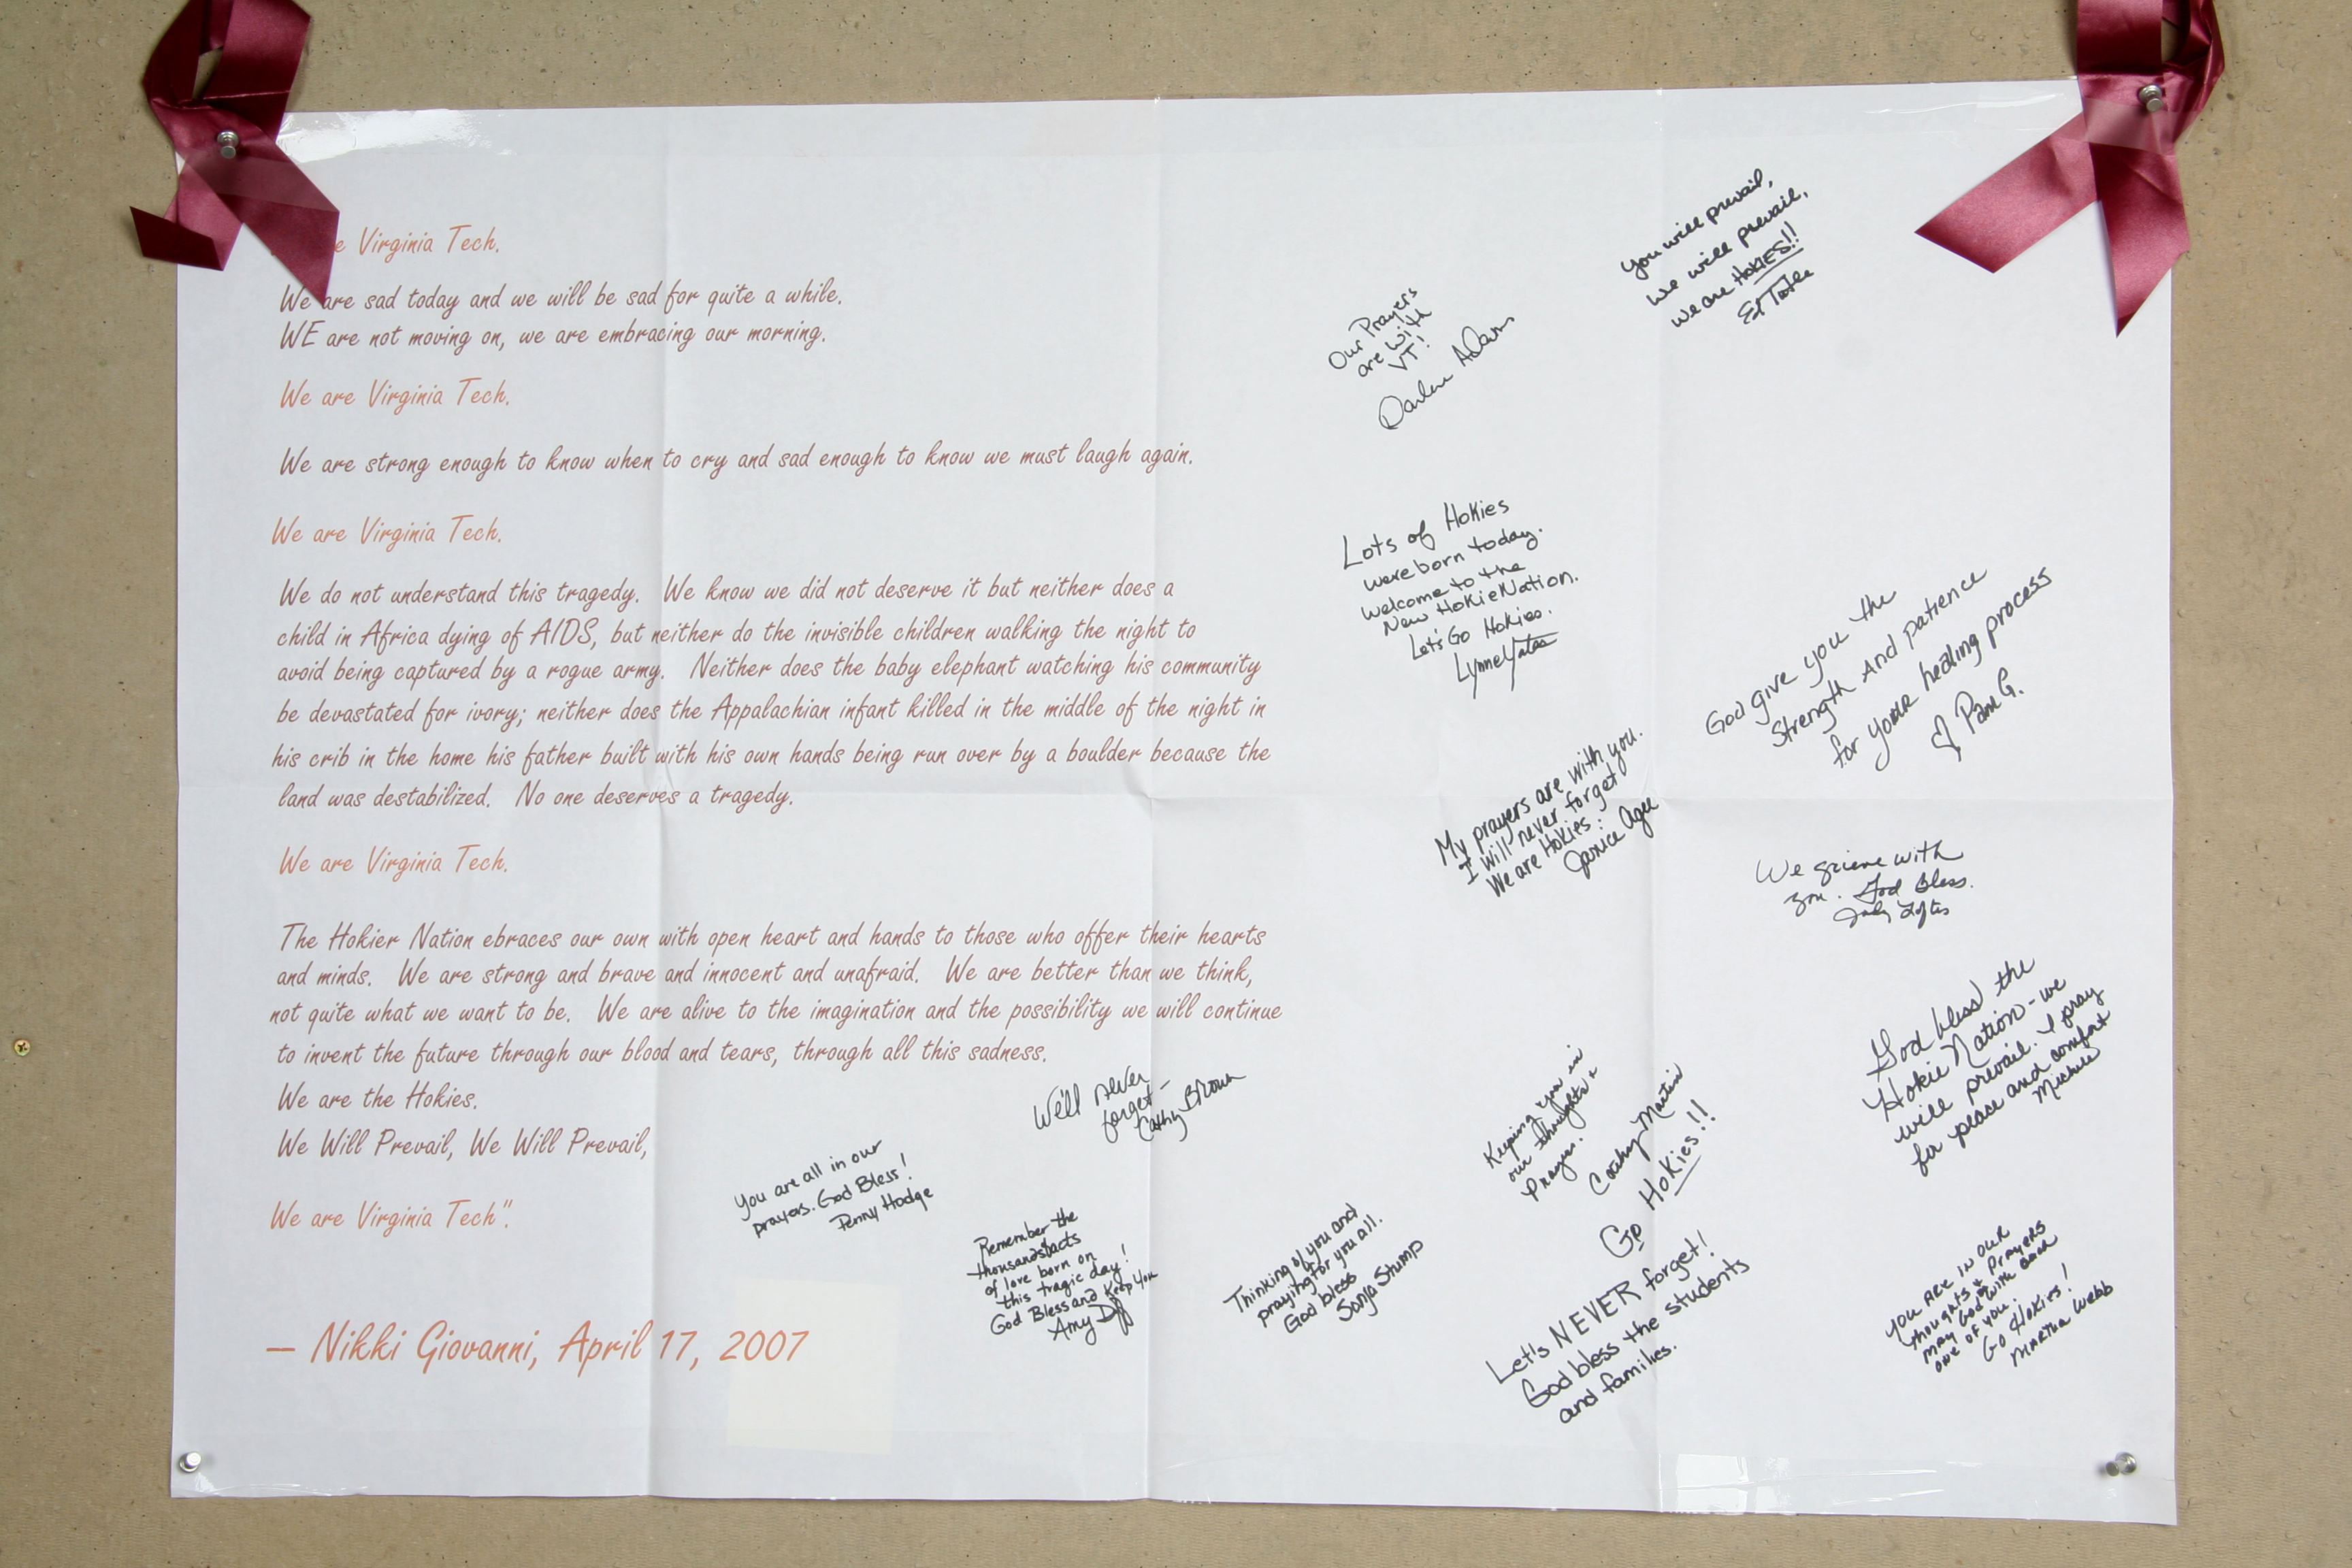 e Virginia Tech.
We are sad today and we will be sad for quite a while.
WE are not moving on, we are embracing our morning.
We are Virginia Tech.
We are strong enough to know when to cry and sad enough to know we must laugh again.
We are Virginia Tech.
We do not understand this tragedy. We know we did not deserve it but neither does a
child in Africa dying of AIDS, but neither do the invisible children walking the night to
avoid being captured by a rogue army. Neither does the baby elephant watching his community
be devastated for ivory; neither does the Appalachian infant killed in the middle of the night in
his crib in the home his father built with his own hands being run over by a boulder because the
land was destabilized. No one deserves a tragedy.
We are Virginia Tech.
The Hokier Nation ebraces our own with open heart and hands to those who offer their hearts
and minds. We are strong and brave and innocent and unafraid. We are better than we think,
not quite what we want to be. We are alive to the imagination and the possibility we will continue
to invent the future through our blood and tears, through all this sadness.
We are the Hokies.
We Will Prevail, We Will Prevail,
We are Virginia Tech".
— Nikki Giovanni, April 17, 2007
You will prevail,
we will prevail,
we are HOKIES!!
Our Prayers
are with
VT!
Darlene Adams
Lots of Hokies
were born today.
Welcome to the
New Hokie Nation.
Let's Go Hokies.
Lynne Yates
God give you the
Strength And patience
for your healing process
Pam G.
My prayers are with you.
I will never forget
We are Hokies:
Janice Agee
We grieve with
you. God Bless.
Judy Loftis
God bless the
Hokie Nation - we
will prevail. I pray
for peace and comfort
Michele
We'll never
forget -
Cathy Brown
You are all in our
prayers. God Bless!
Penny Hodge
Remember the
thousands acts
of love born on
this tragic day!
God Bless and Keep You
Amy
Thinking of you and
praying for you all.
God bless
Sonja Stump
Keeping you in
our thoughts +
Prayers.
Cathy Martin
Go Hokies!!
Let's NEVER forget!
God bless the students
and families.
You ARE IN OUR
thoughts & PrAyers
may God with each
one of you.
Go Hokies!
MARthA Webb